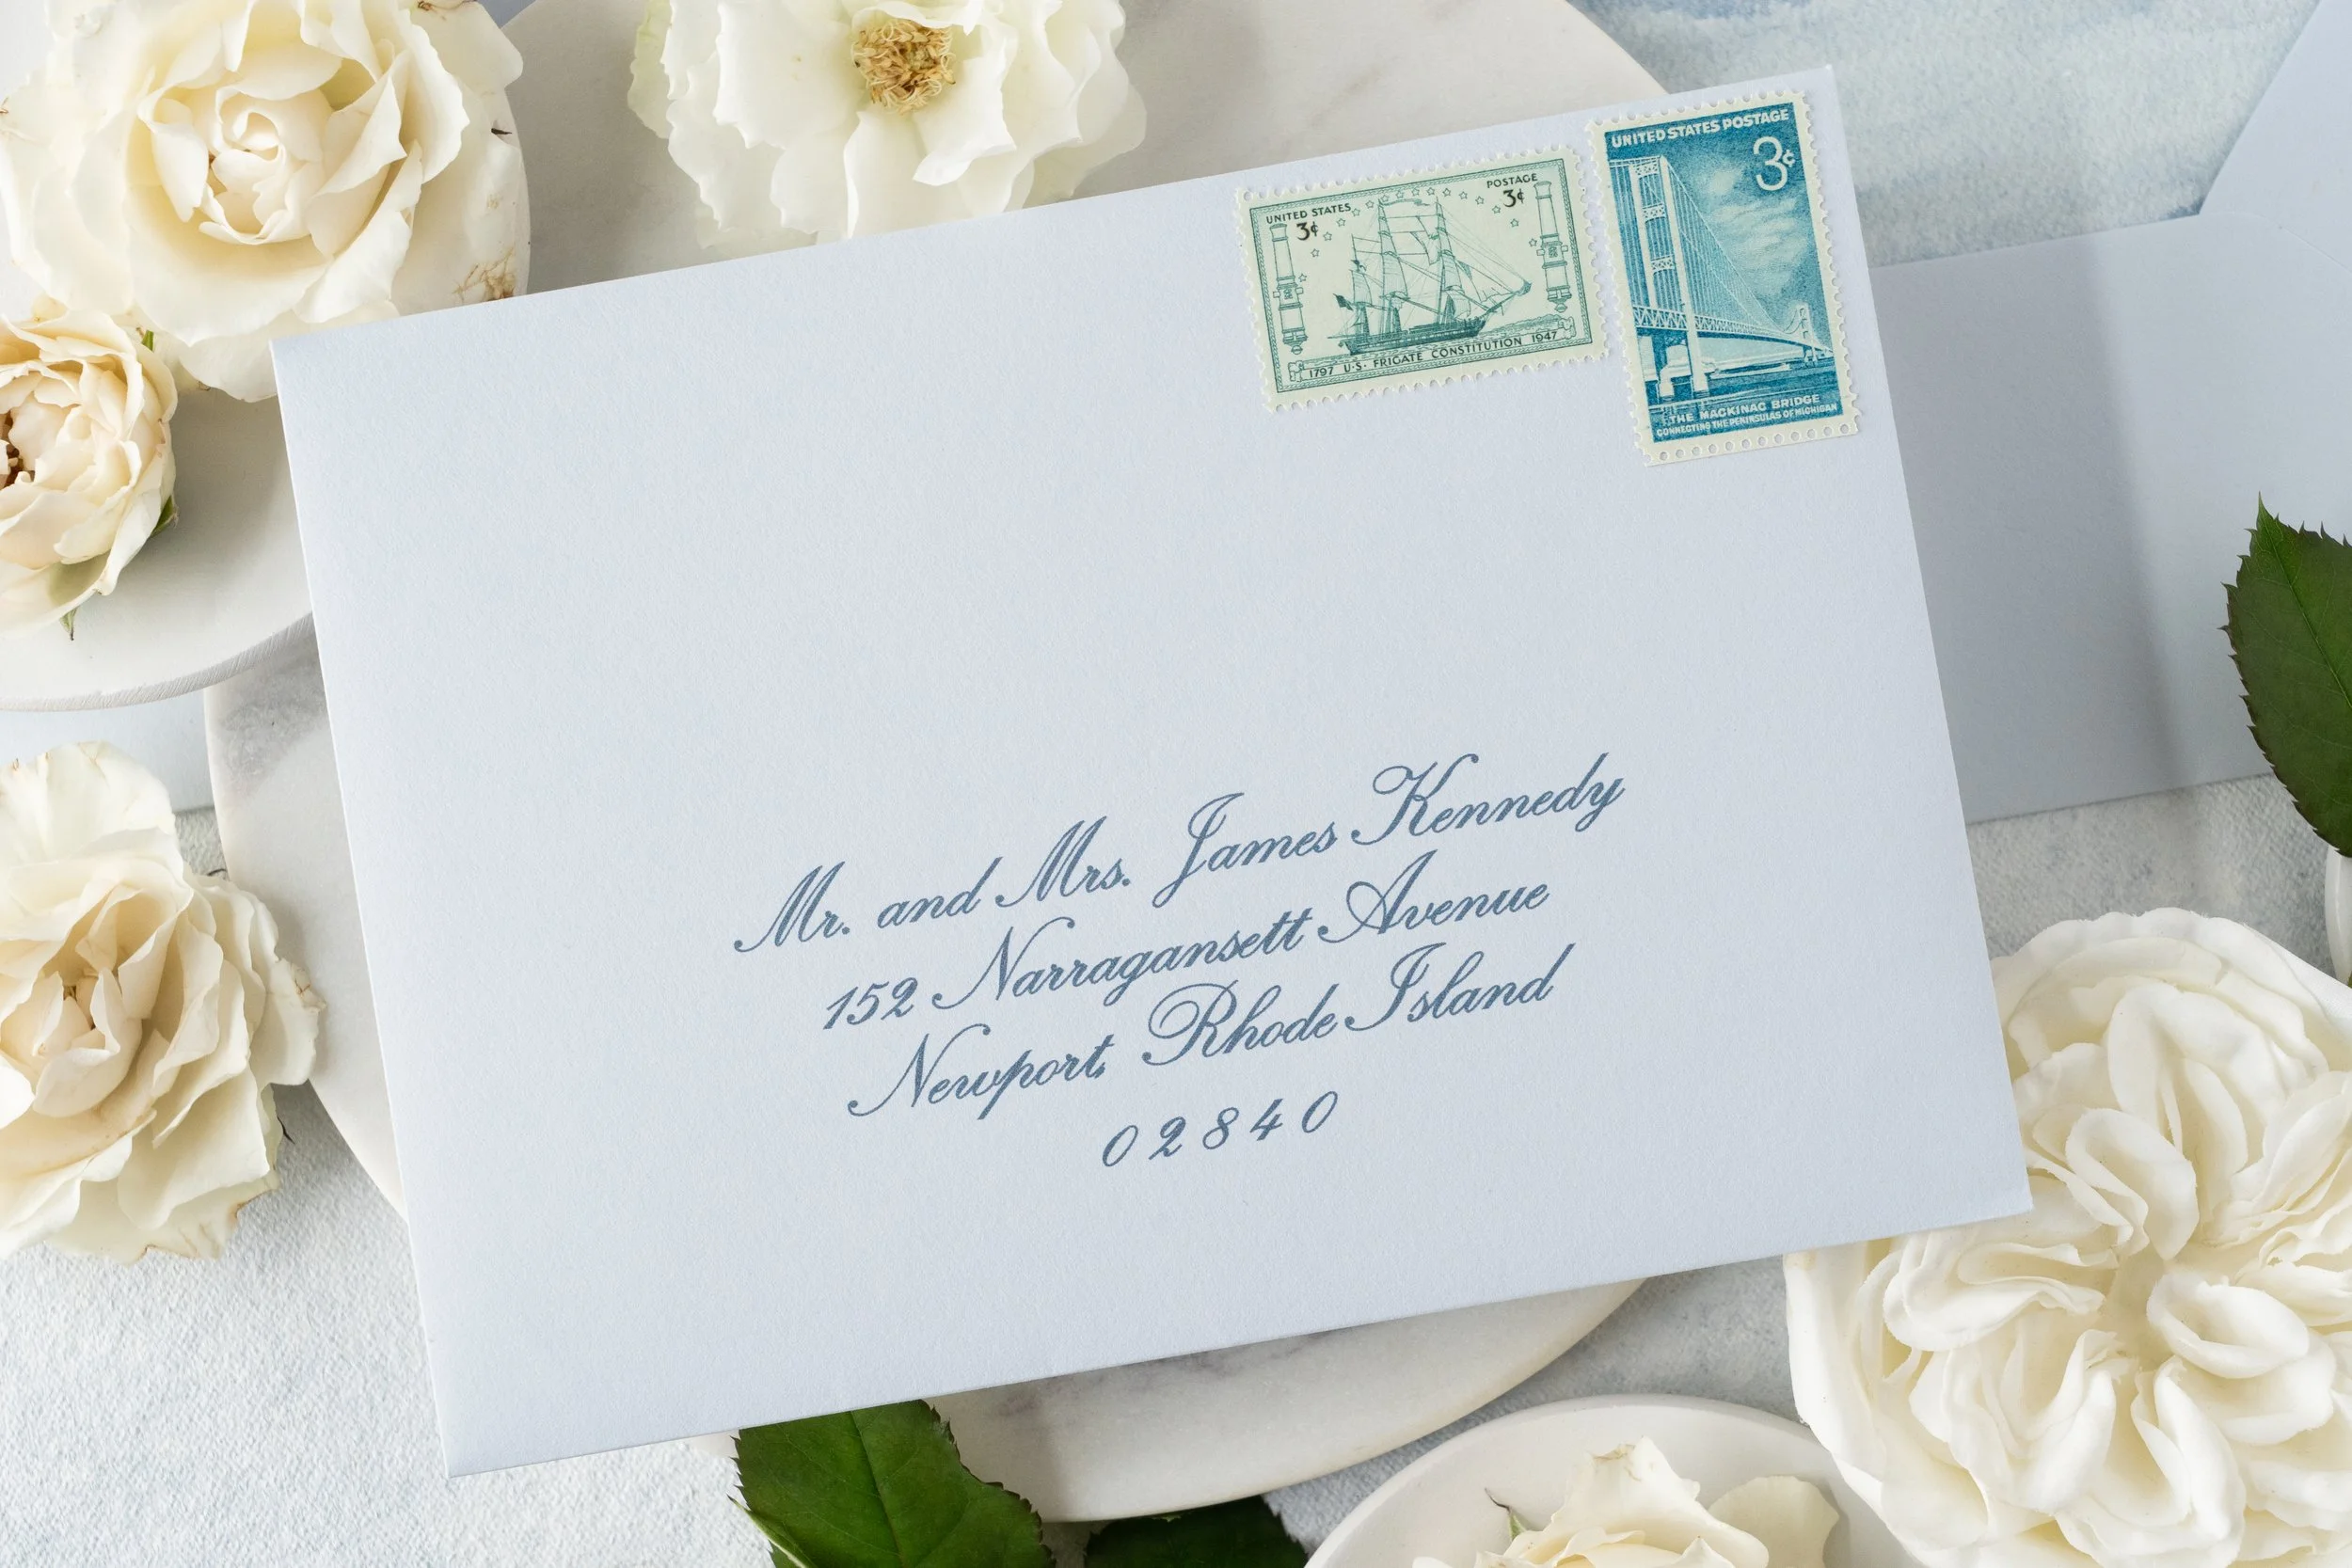 UNITED STATES
POSTAGE
3¢
3¢
1797 U·S· FRIGATE CONSTITUTION 1947
UNITED STATES POSTAGE
3¢
THE MACKINAC BRIDGE
CONNECTING THE PENINSULAS OF MICHIGAN
Mr. and Mrs. James Kennedy
152 Narragansett Avenue
Newport, Rhode Island
02840